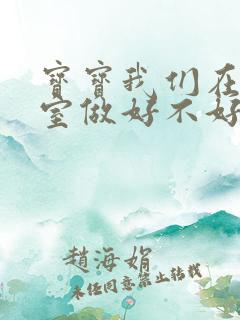 寶寶我们在
室做好不好
趙海娟
未经同意禁止转载